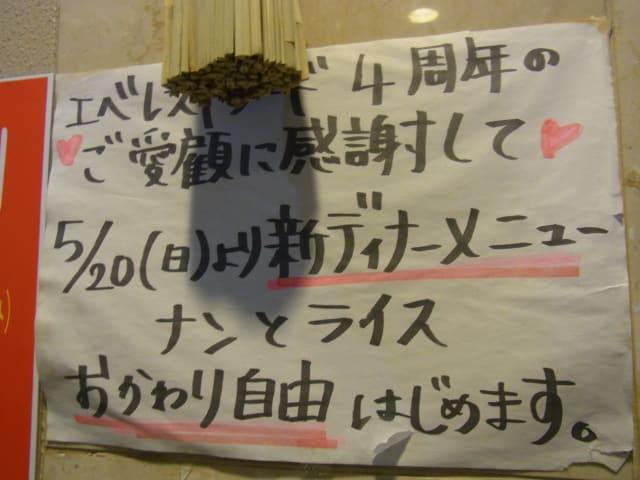 エベレスト ード 4周年の
ご愛顧に感謝して
5/20(日)より新ディナーメニュー
ナンとライス
おかわり自由はじめます。